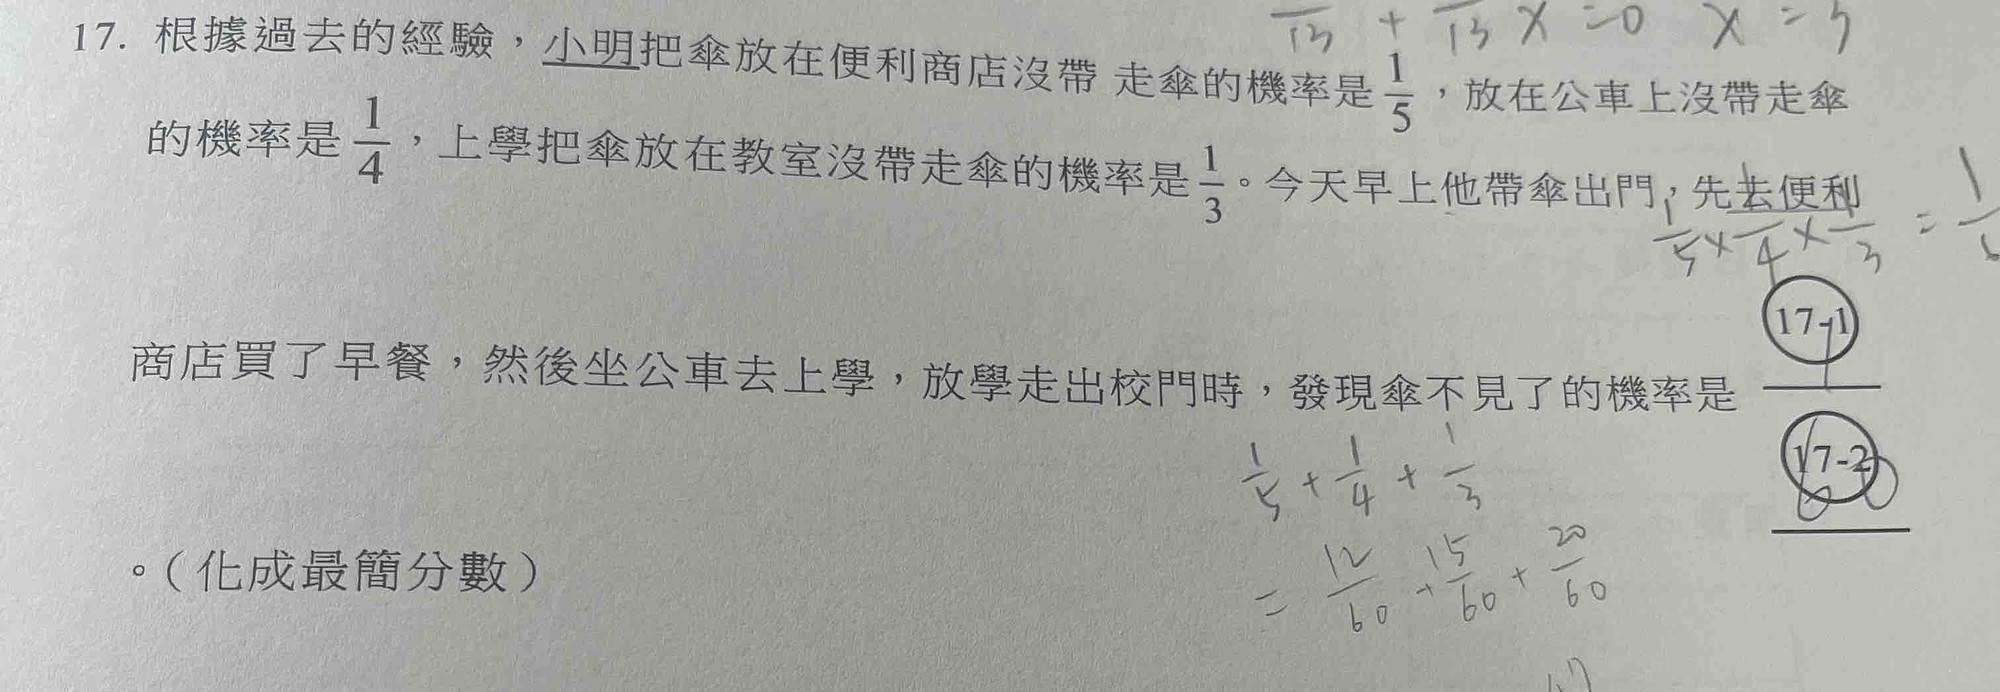 17. 根據過去的經驗，小明把傘放在便利商店沒帶 走傘的機率是1/5，放在公車上沒帶走傘
的機率是1/4，上學把傘放在教室沒帶走傘的機率是1/3。今天早上他帶傘出門，先去便利
1/5 × 1/4 × 1/3 =
17-1
商店買了早餐，然後坐公車去上學，放學走出校門時，發現傘不見了的機率是
17-2
1/5 + 1/4 + 1/3
= 12/60 + 15/60 + 20/60
。（化成最簡分數）